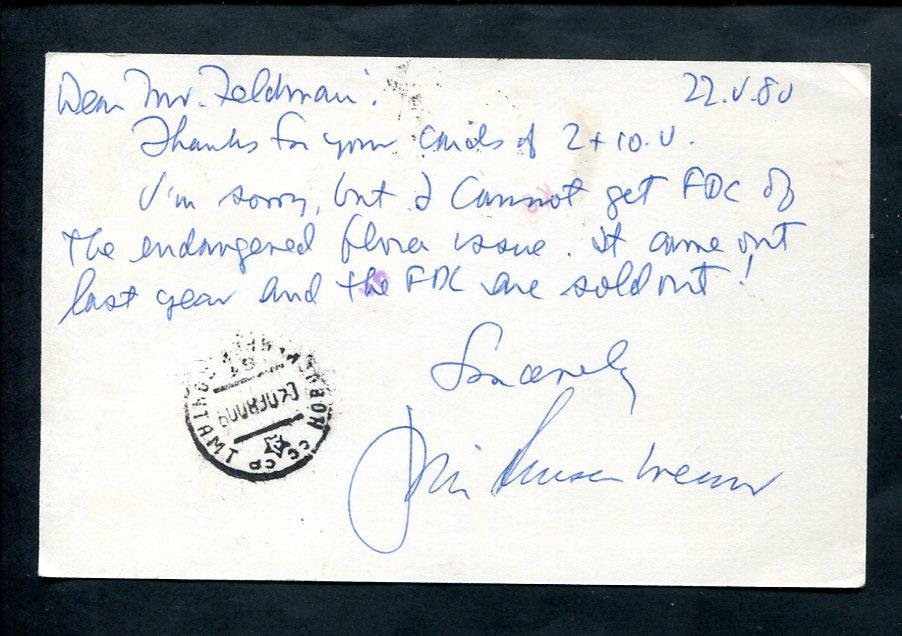 Dear Mr. Feldman: 22.V.80
Thanks for your cards of 2 + 10.V.
I'm sorry, but I cannot get FDC of
the endangered flora issue. It came out
last year and the FDC are sold out!
Sincerely
СССР